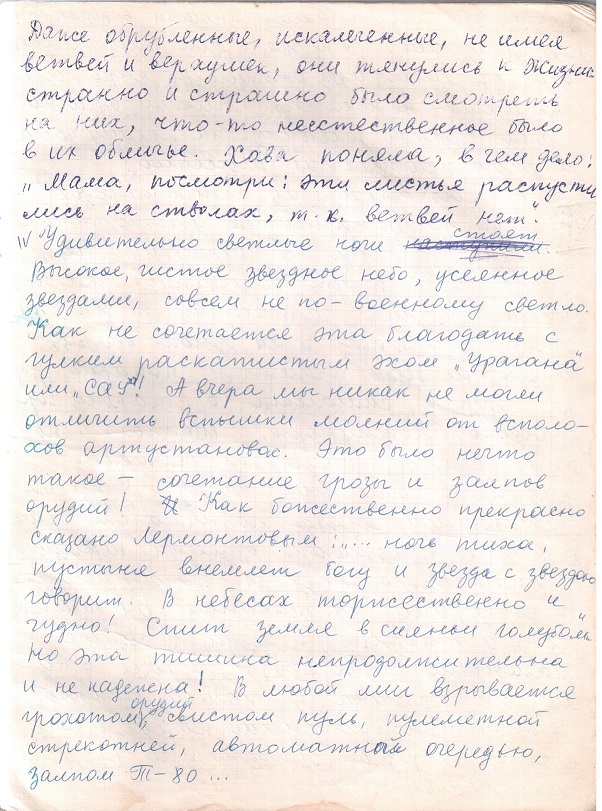 Даже обрубленные, искалеченные, не имея
ветвей и верхушек, они тянулись к жизни.
странно и страшно было смотреть
на них, что-то неестественное было
в их обличье. Хава поняла, в чем дело:
„Мама, посмотри: эти листья распусти
лись на стволах, т. к. ветвей нет".
IV Удивительно светлые ночи стоят
Высокое, чистое звездное небо, усеянное
звездами, совсем не по-военному светло.
Как не сочетается эта благодать с
гулким раскатистым эхом „Урагана"
или „Сау"! А вчера мы никак не могли
отличить вспышки молний от вспо-
хов артустановок. Это было нечто
такое — сочетание грозы и залпов
орудий! Как божественно прекрасно
сказано Лермонтовым: „... ночь тиха,
пустыня внемлет богу и звезда с звездою
говорит. В небесах торжественно и
чудно! Спит земля в сияньи голубом"...
Но эта тишина непродолжительна
и не надежна! В любой миг взрывается
грохотом орудий, свистом пуль, пулеметной
стрекотней, автоматной очередью,
залпом Т-80...